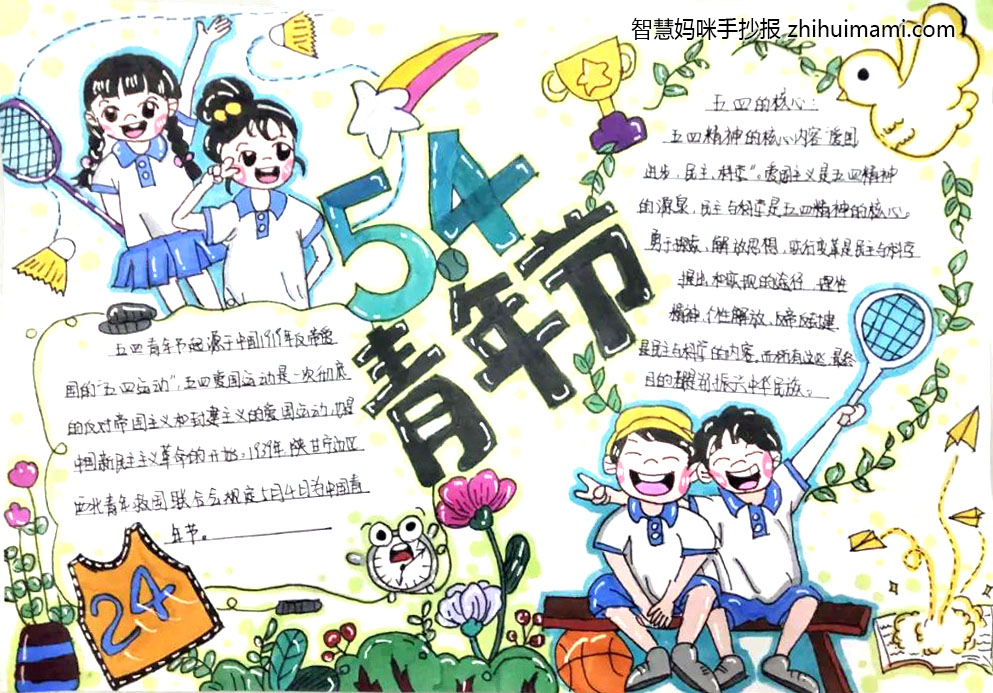 智慧妈咪手抄报 zhihuimami.com
5.4
青年节
五四的核心:
五四精神的核心内容"爱国
进步,民主,科学"。爱国主义是五四精神
的源泉,民主与科学是五四精神的核心。
勇于探索、解放思想、实行变革是民主与科学
提出和实现的途径 理性
精神,个性解放,反帝反封建
是民主与科学的内容。而所有这些,最终
目的都是为振兴中华民族。
五四青年节起源于中国1919年反帝爱
国的"五四运动",五四爱国运动是一次彻底
的反对帝国主义和封建主义的爱国运动,也是
中国新民主主义革命的开始。1939年,陕甘宁边区
西北青年救国联合会规定5月4日为中国青
年节。
24